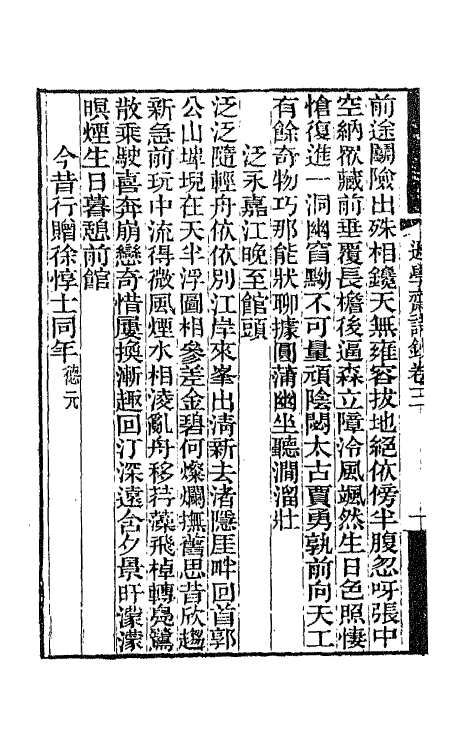 前途鬭險出殊相鑱天無雍容拔地絕依傍半腹忽呀張中
空納欲藏前垂覆長檐後逼森立障泠風颯然生日色照悽
愴復進一洞幽窅黝不可量頑陰閟太古賈勇孰前向天工
有餘奇物巧那能狀聊據圓蒲幽坐聽澗溜壯
泛永嘉江晚至館頭
泛泛隨輕舟依依別江岸來峯出淸新去渚隱厓畔回首郭
公山埤堄在天半浮圖相參差金碧何燦爛撫舊思昔欣趨
新急前玩中流得微風煙水相淩亂舟移荇藻飛棹轉鳧鷖
散乘駛喜奔崩戀奇惜屢換漸趣回汀深遠含夕景旰濛濛
暝煙生日暮憩前館
今昔行贈徐惇士同年德元
遜學齋詩鈔卷三
十